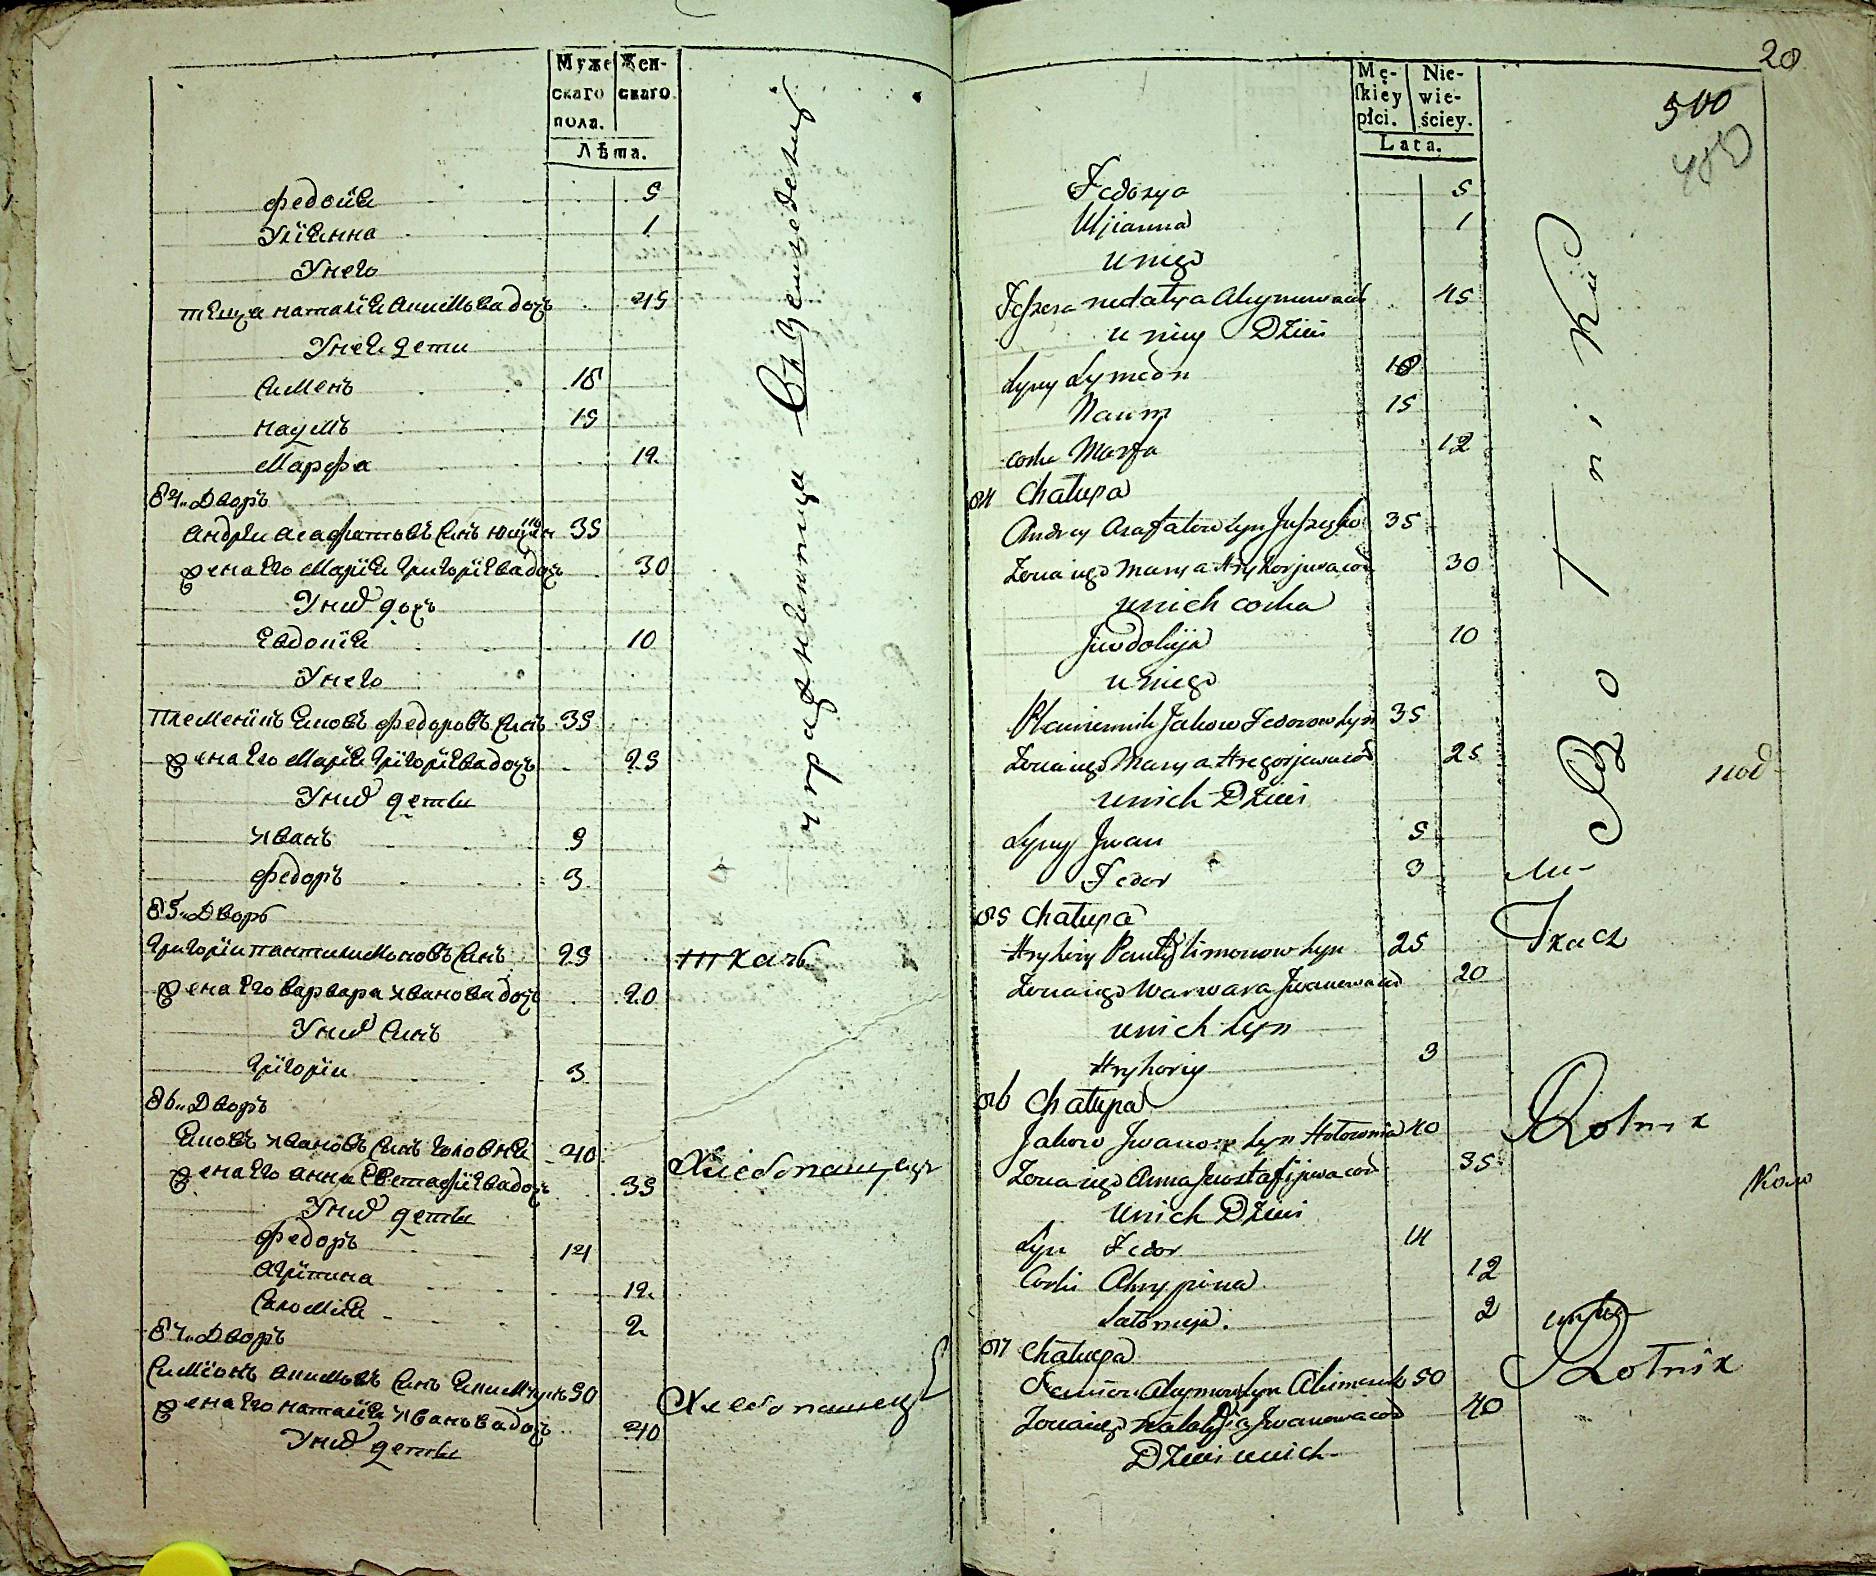 Муже
скаго
пола.
Жен-
скаго
Лѣта.
федосїя 5
Улїянна 1
Унего
теща наталїя Акимова дочь 45
Унея дети
Сименъ 18
наумъ 15
Марфа 12
84. Дворъ
Андрѣи Асафатовъ Синъ 35
жена Его Марїя Григорїева дочь 30
Уних дочь
Евдокїя 10
Унего
племенїкъ Яковъ федоровъ Синъ 35
жена Его Марїя Григорїева дочь 25
Уних дети
Иванъ 5
федоръ 3
85. Дворъ
Григорїи пантилимоновъ Синъ 25
жена Его варвара Иванова дочь 20
Уних Синъ
Григорїи 3
86. Дворъ
Яковъ Ивановъ Синъ Головня 40
жена Его анна Евстафїева дочь 35
Уних дети
федоръ 14
Агрипина 12
Саломїя 2
87. Дворъ
Симїонъ Акимовъ Синъ 50
жена Его наталїя Иванова дочь 40
Уних дети
упражняютца въ земледелиї
ткачь
Хлебопашець
Хлебопашець
28
500
Mę-
skiey
płci.
Nie-
wie-
ściey.
Lata.
Fedosya 5
Uljianna 1
u niego
Teszcza natalya Akymowa 45
u niey Dzieci
Syny Symeon 18
Naum 15
corka Marfa 12
84 Chałupa
Andrey Asafatow syn Juszczyko 35
Zona iego Marya Hryhorjewa cor 30
u nich corka
Jewdokija 10
u niego
Plemiennik Jakow Fedorow syn 35
Zona iego Marya Hregorjewa cor 25
u nich Dzieci
Syny Jwan 5
Fedor 3
85 Chałupa
Hryhory Pantylimonow syn 25
Zona iego Warwara Jwanowa cor 20
u nich syn
Hryhoriy 3
86 Chałupa
Jakow Jwanow syn Hołownia 40
Zona iego Anna Jewstafijewa cor 35
u nich Dzieci
Syn Fedor 14
Corki Ahrypina 12
Sałomija. 2
87 Chałupa
Semion Akymow syn Akimenko 50
Zona iego Natalyia Jwanowa cor 40
Dzieci u nich
Rolniki
Tkacz
Rolnik
Rolnik